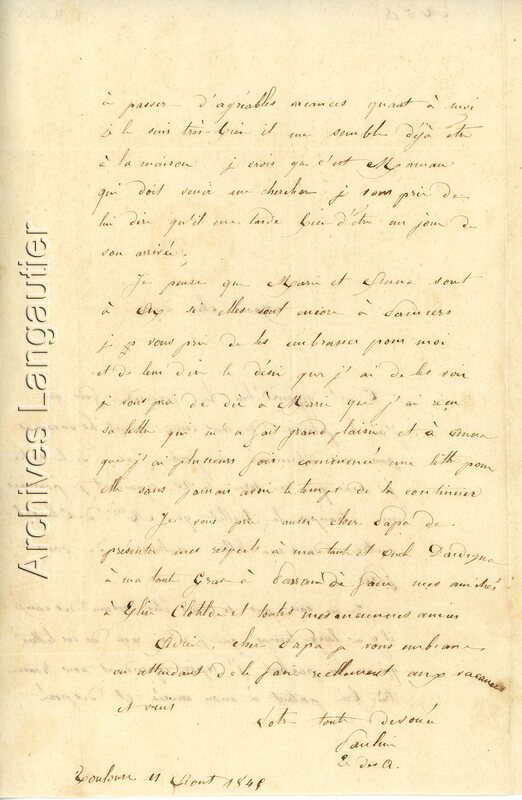 à passer d'agréables vacances quant à moi
je le suis très-bien il me semble déjà être
à la maison je crois que c'est Maman
qui doit venir me chercher je vous prie de
lui dire qu'il me tarde bien d'être au jour de
son arrivée.
Je pense que Marie et Emma sont
à si elles sont encore à Pamiers
je vous prie de les embrasser pour moi
et de leur dire le désir que j'ai de les voir
je vous prie de dire à Marie que j'ai reçu
sa lettre qui m'a fait grand plaisir et à Emma
que j'ai plusieurs fois commencé une lettre pour
elle sans jamais avoir le temps de la continuer
Je vous prie aussi cher Papa de
présenter mes respects à ma tante et oncle Dardigna
à ma tante faire mes amitiés
à Elisa Clotilde et toutes mes anciennes amies
Adieu, cher Papa je vous embrasse
en attendant de le faire réellement aux vacances
et suis
Votre toute dévouée
Pauline
E. des A.
Toulouse 11 Aout
Archives Langautier